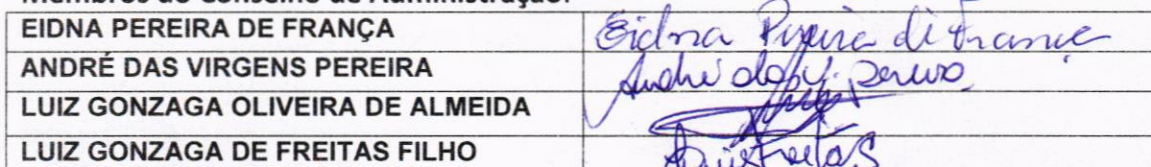 Membros do Conselho de Administração:
EIDNA PEREIRA DE FRANÇA Eidna Pereira di França
ANDRÉ DAS VIRGENS PEREIRA André das V. Pereira
LUIZ GONZAGA OLIVEIRA DE ALMEIDA
LUIZ GONZAGA DE FREITAS FILHO Luiz Freitas